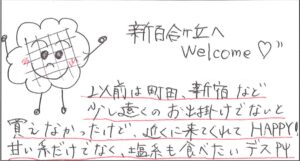 新百合ヶ丘へ
Welcome♡
以前は町田、新宿など
少し遠くのお出掛けでないと
買えなかったけど、近くに来てくれてHAPPY!
甘い系だけでなく、塩系も食べたいデス